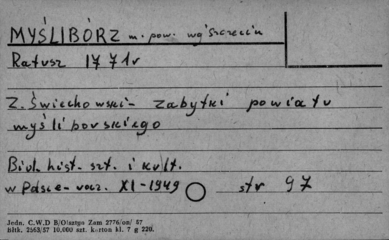 MYŚLIBÓRZ m. pow. woj szczecin
Ratusz 1771r
Z. Świechowski - zabytki powiatu
myśliborskiego
Biul. hist. szt. i kult.
w Polsce - rocz. XI-1949 str 97
Jedn. C.W.D B/Olsztyn Zam 2776/on/ 57
bltk. 2563/57 10.000 szt. karton kl. 7 g 220.